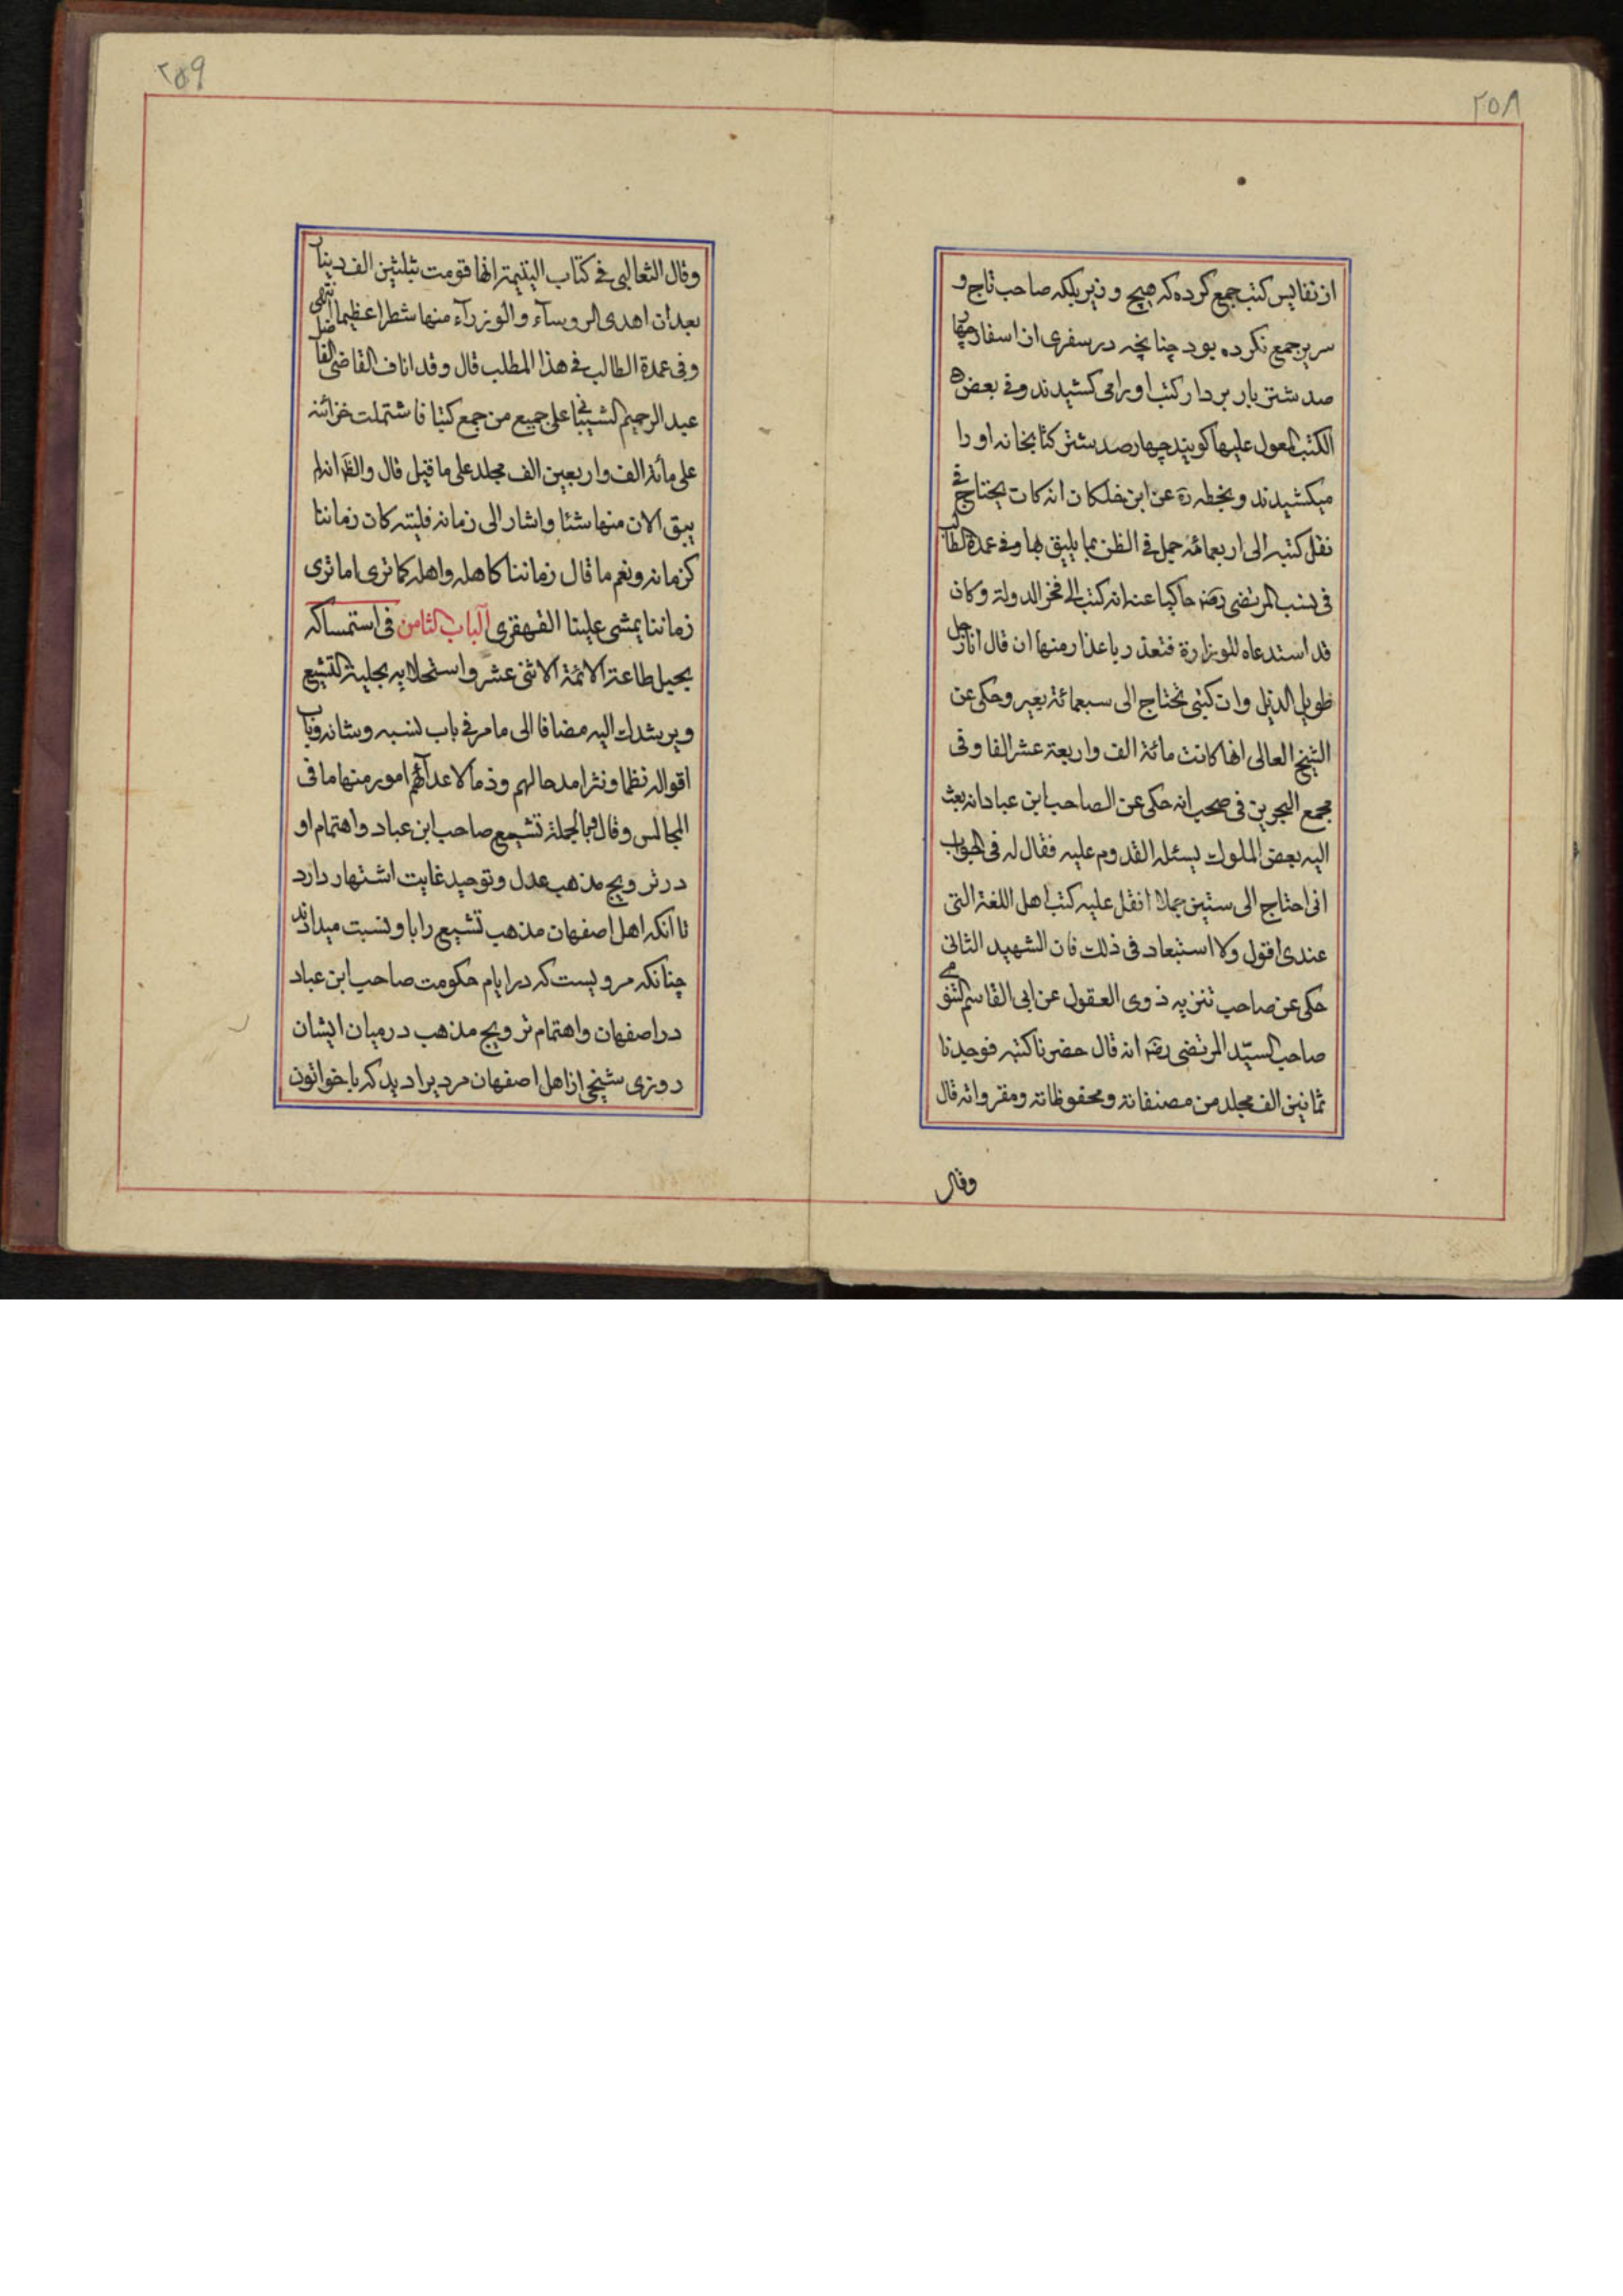 ٢٥٨
از نفایس کتب جمع کرده که هیچ وزیر بلکه صاحب تاج و
سریر جمع نکرده بود چنانچه در سفری از اسفار چهار
صد شتر بار بردار کتب او را می کشیدند و فی بعض
الکتب المعول علیها کویند چهار صد شتر کتابخانه او را
میکشیدند و بخطه ره عن ابن خلکان انه کان یحتاج فی
نقل کتبه الی اربعمائه جمل فی الظن بما یلیق بها و فی عمدة الطالب
فی نسب المرتضی رضه حاکیا عنه انه کتب الی فخر الدولة و کان
قد استدعاه للوزارة فتعذر باعذار منها ان قال انا رجل
طویل الذیل و ان کتبی تحتاج الی سبعمائة بعیر و حکی عن
الشیخ العالی انها کانت مائة الف و اربعة عشر الفا و فی
مجمع البحرین فی صحب انه حکی عن الصاحب ابن عباد انه بعث
الیه بعض الملوک یسئله القدوم علیه فقال له فی الجواب
انی احتاج الی ستین جملا انقل علیه کتب اهل اللغة التی
عندی اقول و لا استبعاد فی ذلک فان الشهید الثانی
حکی عن صاحب تنزیه ذوی العقول عن ابی القاسم التنوخی
صاحب السیّد المرتضی رضه انه قال حضرنا کتبه فوجدنا
ثمانین الف مجلد من مصنفاته و محفوظاته و مقرواته قال
وقال
٢٥٩
وقال الثعالبی فی کتاب الیتیمة انها قومت بثلثین الف دینار
بعد ان اهدی الروساء و الوزرآء منها شطرا عظیما انتهی
و فی عمدة الطالب فی هذا المطلب قال و قد اناف القاضی الفاضل
عبد الرحیم الشیبانی علی جمیع من جمع کتبا فاشتملت خزائنه
علی مائة الف و اربعین الف مجلد علی ما قیل قال والظ انه لم
یبق الان منها شئا و اشار الی زمانه فلیته کان زماننا
کزمانه و نعم ما قال زماننا کاهله و اهله کما تری اما تری
زماننا یمشی علینا القهقری الباب الثامن فی استمساکه
بحبل طاعة الائمة الاثنی عشر و استحلابه بحلیة التشیع
و یرشدک الیه مضافا الی ما مر فی باب نسبه و شانه و باب
اقواله نظما و نثرا مدحا لهم و ذما لاعدآئهم امور منها ما فی
المجالس و قال فبالجملة تشیع صاحب ابن عباد و اهتمام او
در ترویج مذهب عدل و توحید غایت اشتهار دارد
تا انکه اهل اصفهان مذهب تشیع را باو نسبت میدادند
چنانکه مرویست که در ایام حکومت صاحب ابن عباد
در اصفهان و اهتمام ترویج مذهب در میان ایشان
روزی شیخی از اهل اصفهان مردیرا دید که با خواتون